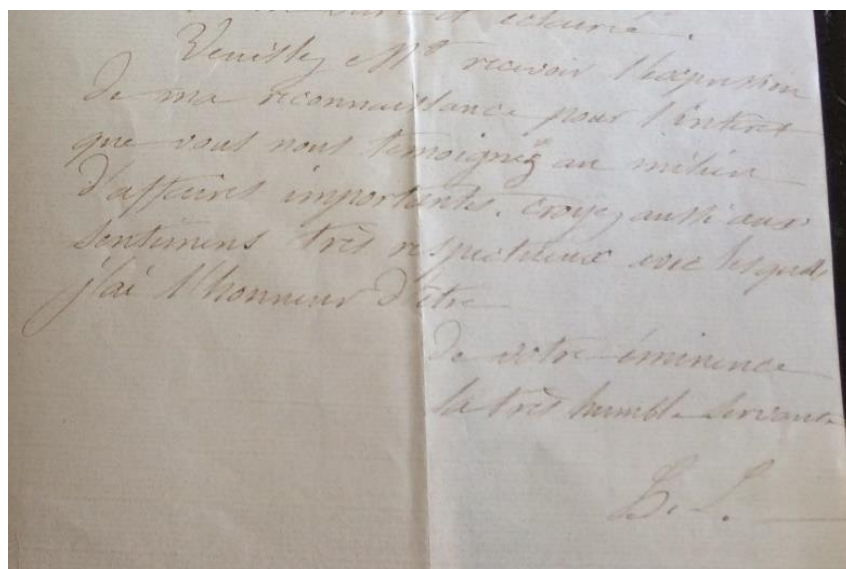 et éclairée.
Veuillez Mgr recevoir l'expression
de ma reconnaissance pour l'intérêt
que vous nous témoignez au milieu
d'affaires importantes. Croyez aussi aux
sentimens très respectueux avec lesquels
j'ai l'honneur d'être
de votre éminence
la très humble servante
L. L.